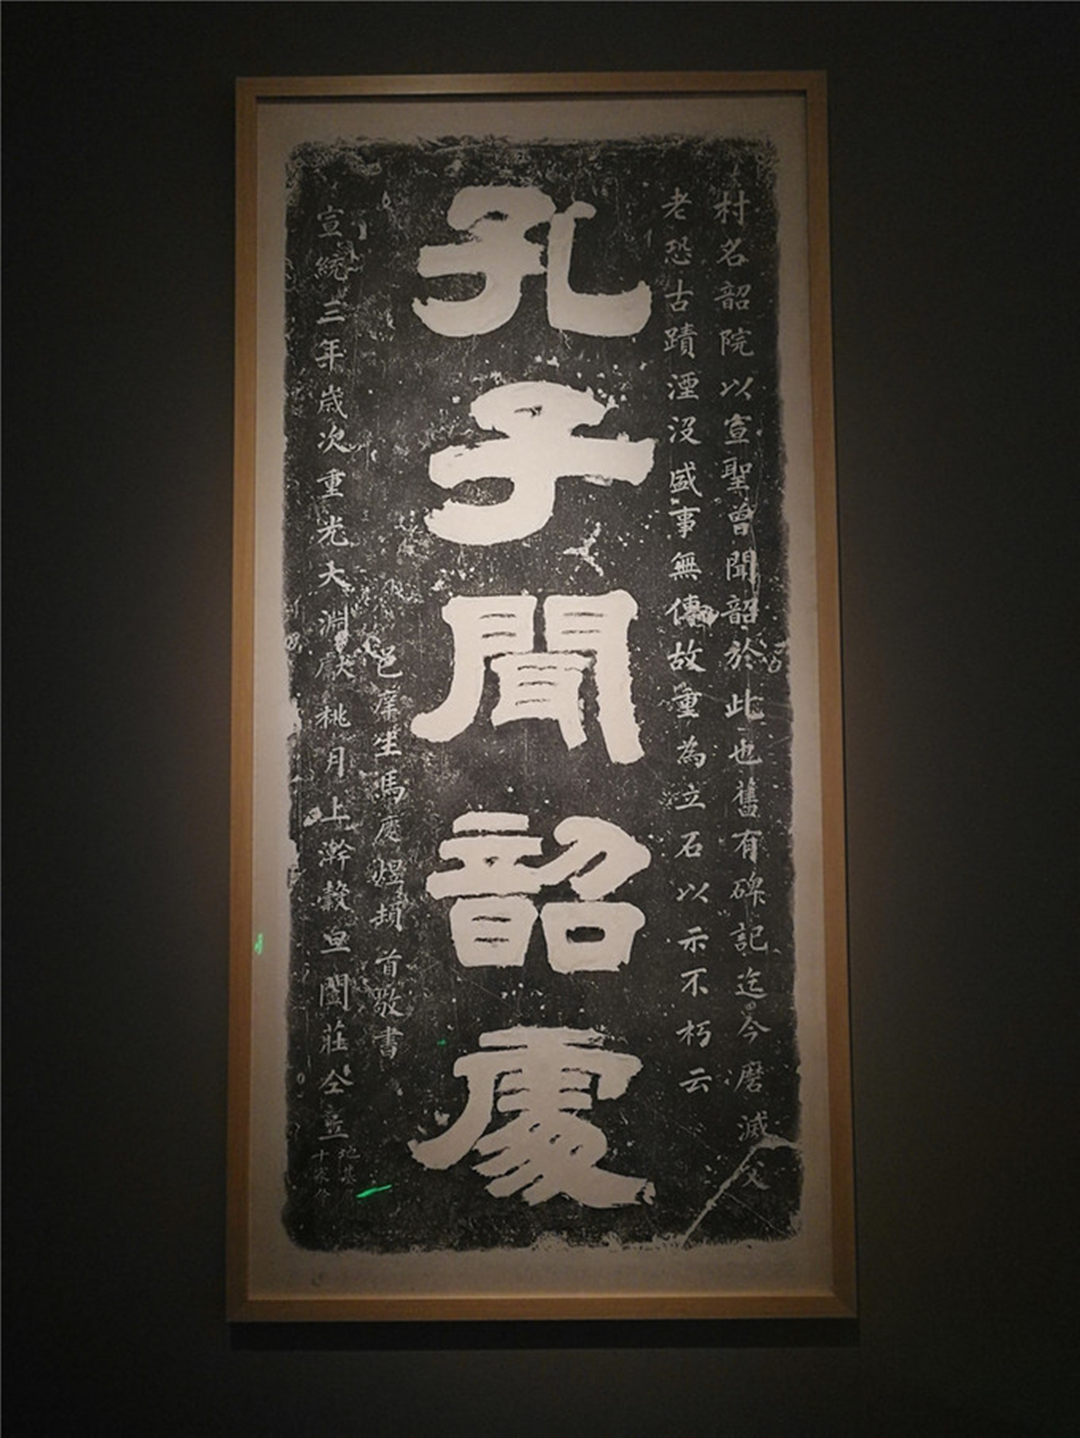 村名韶院以宣聖曾聞韶於此也舊有碑記迄今磨滅父
老恐古蹟湮没盛事無傳故重為立石以示不朽云
孔子聞韶處
邑庠生馮慶煜頓首敬書
宣統三年歲次重光大淵獻桃月上澣穀旦闔莊仝立